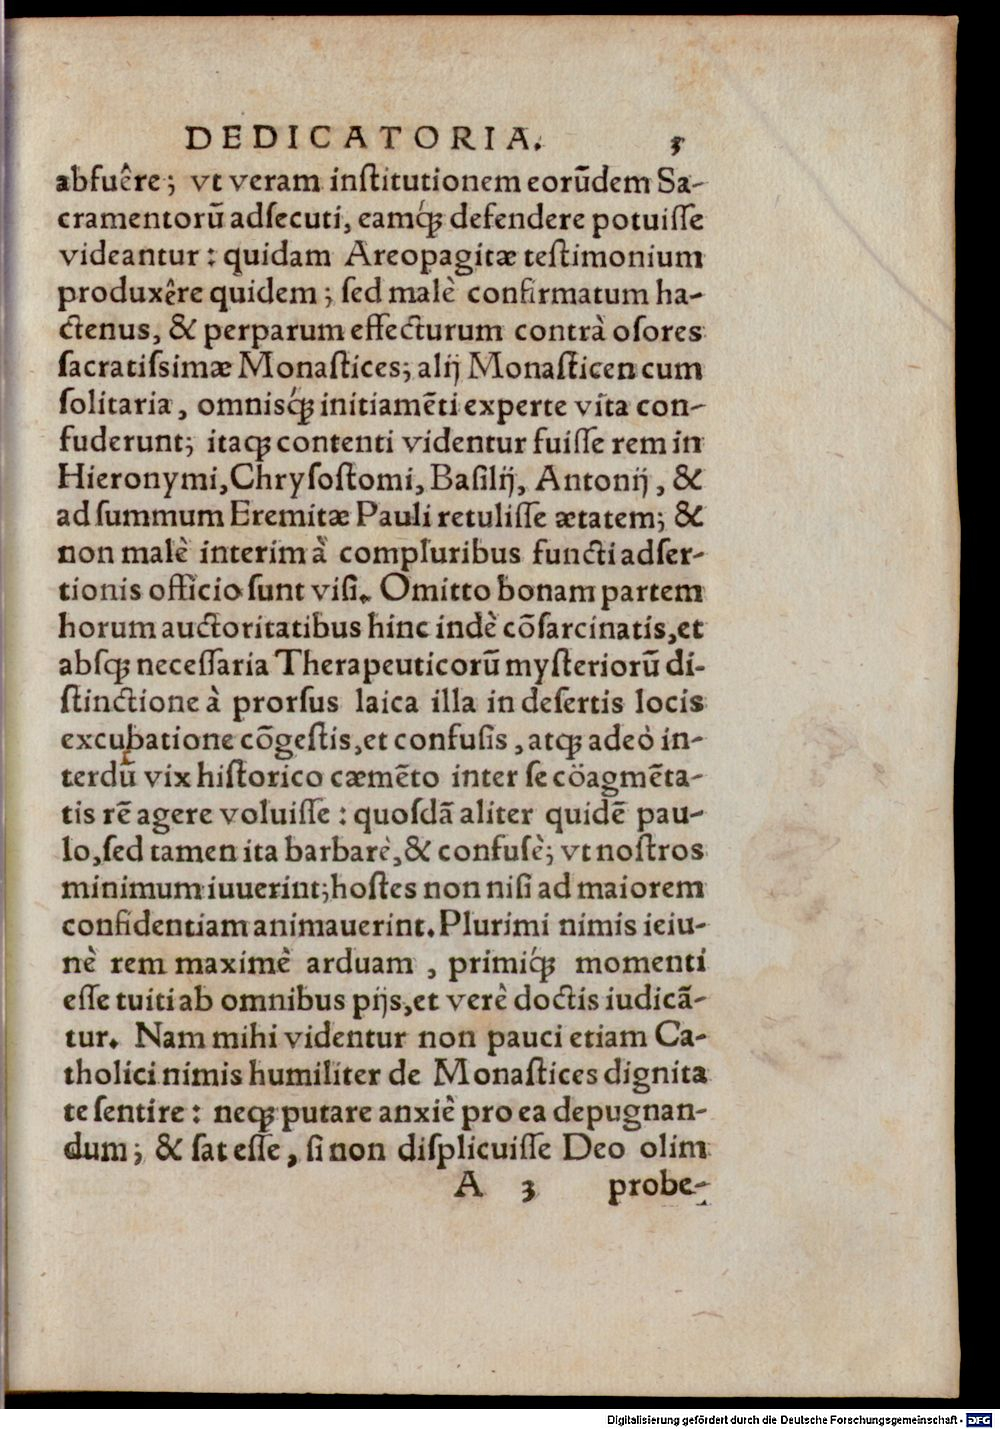 DEDICATORIA. 5
abfuêre; vt veram inſtitutionem eorūdem Sa-
cramentorū adſecuti, eamq́ꝫ defendere potuiſſe
videantur: quidam Areopagitæ teſtimonium
produxêre quidem; ſed malè confirmatum ha-
ctenus, & perparum effecturum contrà oſores
ſacratiſsimæ Monaſtices; alij Monaſticen cum
ſolitaria, omnisq́ꝫ initiamēti experte vita con-
fuderunt; itaqꝫ contenti videntur fuiſſe rem in
Hieronymi, Chryſoſtomi, Baſilij, Antonij, &
ad ſummum Eremitæ Pauli retuliſſe ætatem; &
non malè interim à compluribus functi adſer-
tionis officio ſunt viſi. Omitto bonam partem
horum auctoritatibus hinc indè cōſarcinatis, et
abſqꝫ neceſſaria Therapeuticorū myſteriorū di-
ſtinctione à prorſus laica illa in deſertis locis
excubatione cōgeſtis, et confuſis, atqꝫ adeò in-
terdū vix hiſtorico cæmēto inter ſe cöagmēta-
tis rē agere voluiſſe: quoſdā aliter quidē pau-
lo, ſed tamen ita barbarè, & confuſè; vt noſtros
minimum iuuerint; hoſtes non niſi ad maiorem
confidentiam animauerint. Plurimi nimis ieiu-
nè rem maximè arduam, primiq́ꝫ momenti
eſſe tuiti ab omnibus pijs, et verè doctis iudicā-
tur. Nam mihi videntur non pauci etiam Ca-
tholici nimis humiliter de Monaſtices dignita
te ſentire: neqꝫ putare anxiè pro ea depugnan-
dum; & ſat eſſe, ſi non diſplicuiſſe Deo olim
A 3 probe-
Digitalisierung gefördert durch die Deutsche Forschungsgemeinschaft - DFG